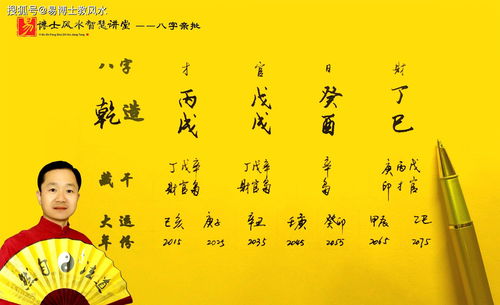 搜狐号@易博士救风水
易 博士风水智慧讲堂 ——八字亲批
八字 才 官 日 財
乾造 丙 戊 癸 丁
戌 戌 酉 巳
藏干 丁戊辛 丁戊辛 辛 庚丙戊
財官枭 財官枭 枭 印才官
大运 己亥 庚子 辛丑 壬寅 癸卯 甲辰 乙巳
年份 2015 2025 2035 2045 2055 2065 2075
然自法道